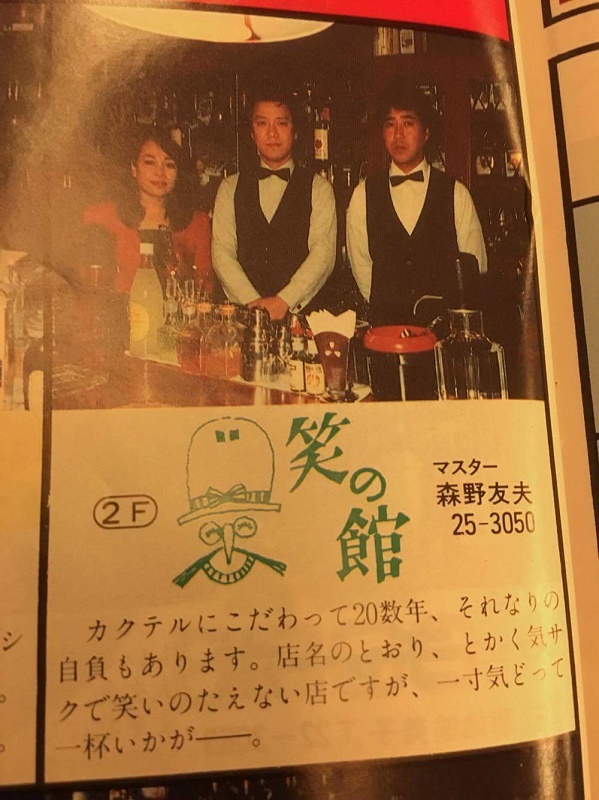 笑の館
2F
マスター
森野友夫
25-3050
カクテルにこだわって20数年、それなりの
自負もあります。店名のとおり、とかく気サ
クで笑いのたえない店ですが、一寸気どって
一杯いかが――。
シ
。
。